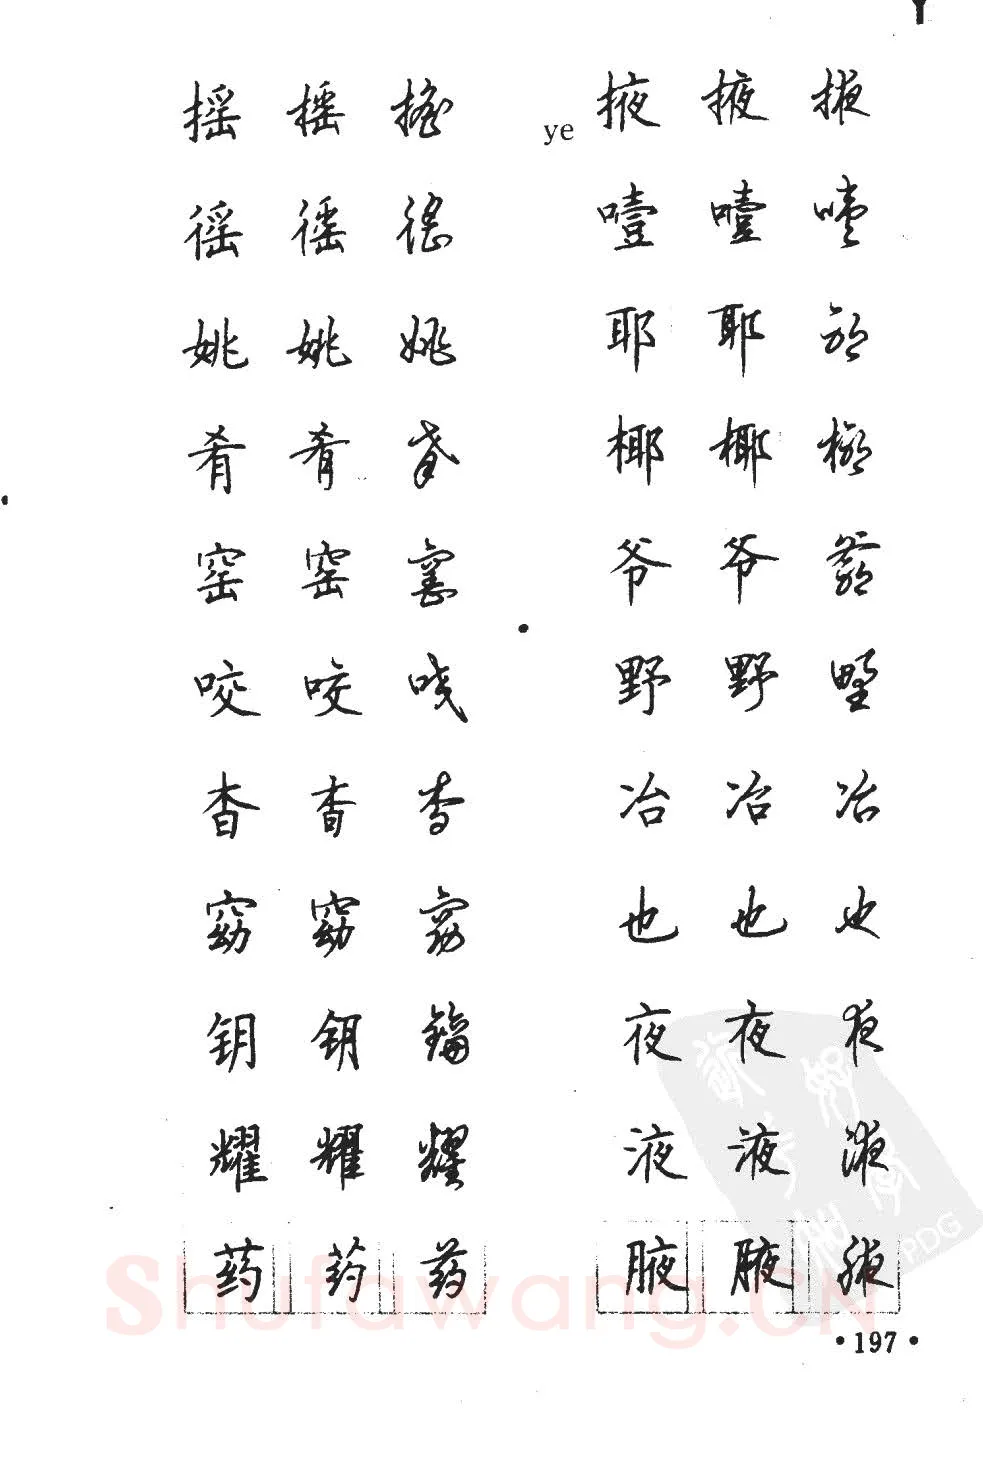 摇 摇 摇
徭 徭 徭
姚 姚 姚
肴 肴 肴
窑 窑 窑
咬 咬 咬
杳 杳 杳
窈 窈 窈
钥 钥 鑰
耀 耀 耀
药 药 药
ye 掖 掖 掖
噎 噎 噎
耶 耶 耶
椰 椰 椰
爷 爷 爺
野 野 野
冶 冶 冶
也 也 也
夜 夜 夜
液 液 液
腋 腋 腋
shufawang.CN
PDG
•197•